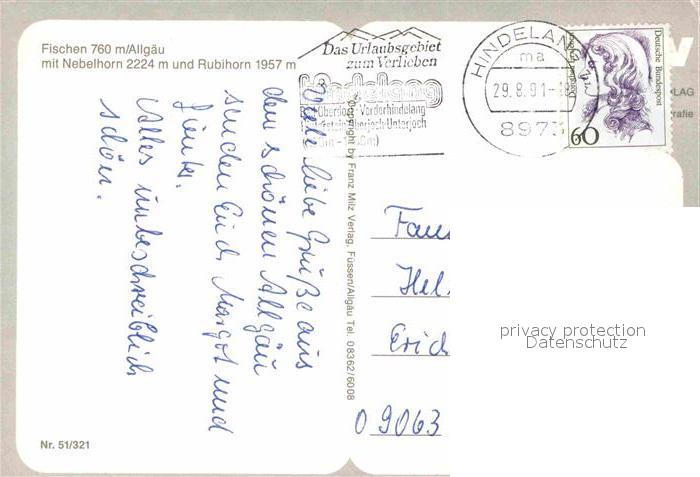 Fischen 760 m/Allgäu
mit Nebelhorn 2224 m und Rubihorn 1957 m
Das Urlaubsgebiet
zum Verlieben
Hindelang
Vorderhindelang
Oberjoch-Unterjoch
HINDELANG
ma
29.8.91
897
Deutsche Bundespost
60
LAG
rafie
Viele liebe Grüße aus
dem schönen Allgäu
senden Euch Margot und
Günter.
Alles unbeschreiblich
schön.
Copyright by Franz Milz Verlag, Füssen/Allgäu Tel. 08362/6008
Fam
Hel
Erich
09063
privacy protection
Datenschutz
Nr. 51/321